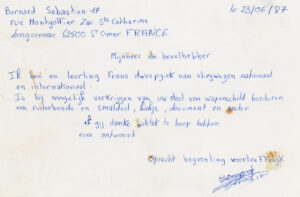 Bernard Sebastien 17
le 23/06/87
rue Montgolfier Zac Ste Catherine
Longuenesse 62500 St Omer FRANCE
Mijnheer de bevelhebber
Ik ben en leerling Frans van vliegwezen nationaal
en internationaal.
Is hij mogelijk verkrijgen van uw deel van wapenschild borduren
van naturbende en smalted, badge, document en ander
gij danke te hoop hebben
eire antwoord
Oprecht begroeting voortreffelijk